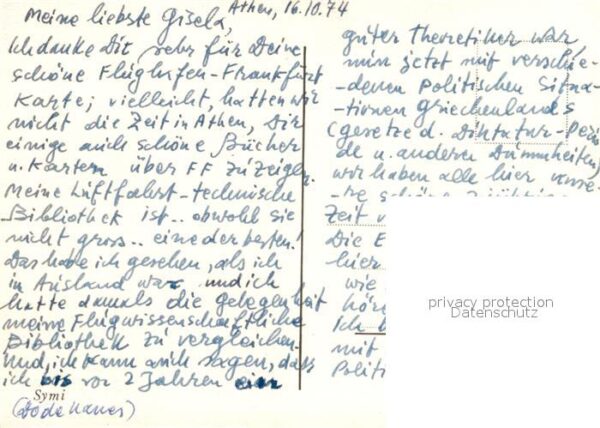 Athen, 16.10.74
Meine liebste Gisela,
Ich danke Dir sehr für Deine
schöne Flughafen-Frankfurt
Karte; vielleicht, hatten wir
nicht die Zeit in Athen, Dir
einige auch schöne Bücher
u. Karten über FF zu zeigen.
Meine Luftfahrt-technische
Bibliothek ist.. obwohl sie
nicht gross.. eine der besten!
Das habe ich gesehen, als ich
in Ausland war und ich
hatte damals die gelegenheit
meine Flugwissenschaftliche
Bibliothek zu vergleichen.
Und, ich kann auch sagen, dass
ich bis vor 2 Jahren ein
Symi
(Dodekanes)
guter Theoretiker war
nun jetzt mit verschie-
-denen Politischen Situa-
-tionen Griechenlands
(gesetze d. Diktatur-Perio
de u. anderen Dummheiten)
wir haben alle hier
schöne
Zeit
Die E
hier
wie
hör
Ich
mit
Politi
privacy protection
Datenschutz